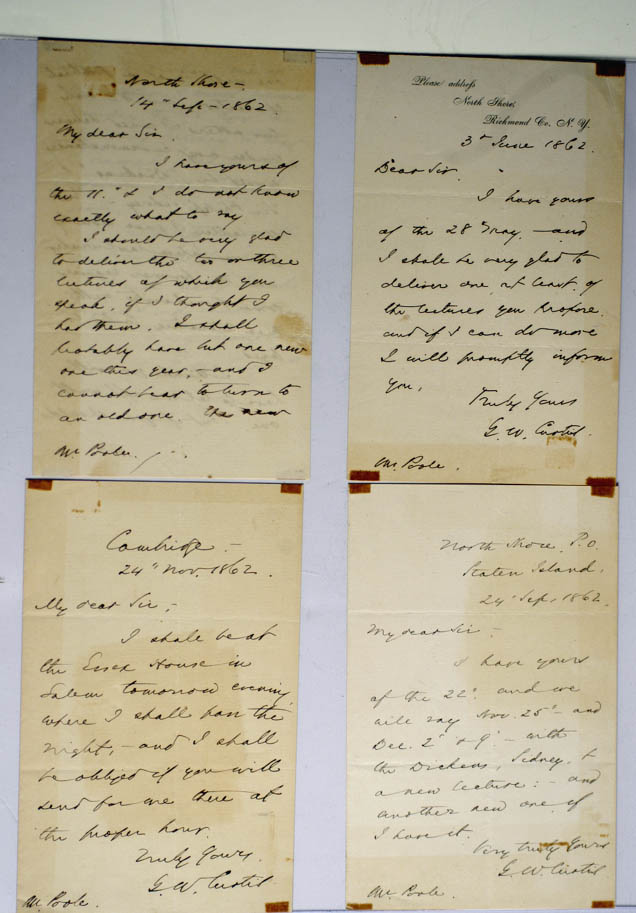 North Shore –
14" Sep – 1862.
My dear Sir.
I have yours of
the 11." & I do not know
exactly what to say
I should be very glad
to deliver the two or three
lectures of which you
speak, if I thought I
had them. I shall
probably have but one new
one this year, – and I
cannot bear to turn to
an old one. The new
Mr Poole.
Please address
North Shore,
Richmond Co. N. Y.
3d June 1862.
Dear Sir.
I have yours
of the 28 May – and
I shall be very glad to
deliver one, at least, of
the lectures you propose.
and if I can do more
I will promptly inform
you,
Truly Yours
G. W. Curtis.
Mr Poole.
Cambridge –
24" Nov. 1862.
My dear Sir,
I shall be at
the Essex House in
Salem tomorrow evening,
where I shall pass the
night, – and I shall
be obliged if you will
send for me there at
the proper hour.
Truly Yours.
G. W. Curtis
Mr Poole.
North Shore. P.O.
Staten Island,
24" Sep. 1862.
My dear Sir –
I have yours
of the 22d. and we
will say Nov. 25" – and
Dec. 2d & 9" – with
the Dickens, Sidney, &
a new lecture: – and
another new one if
I have it.
Very truly Yours
G. W. Curtis
Mr Poole.